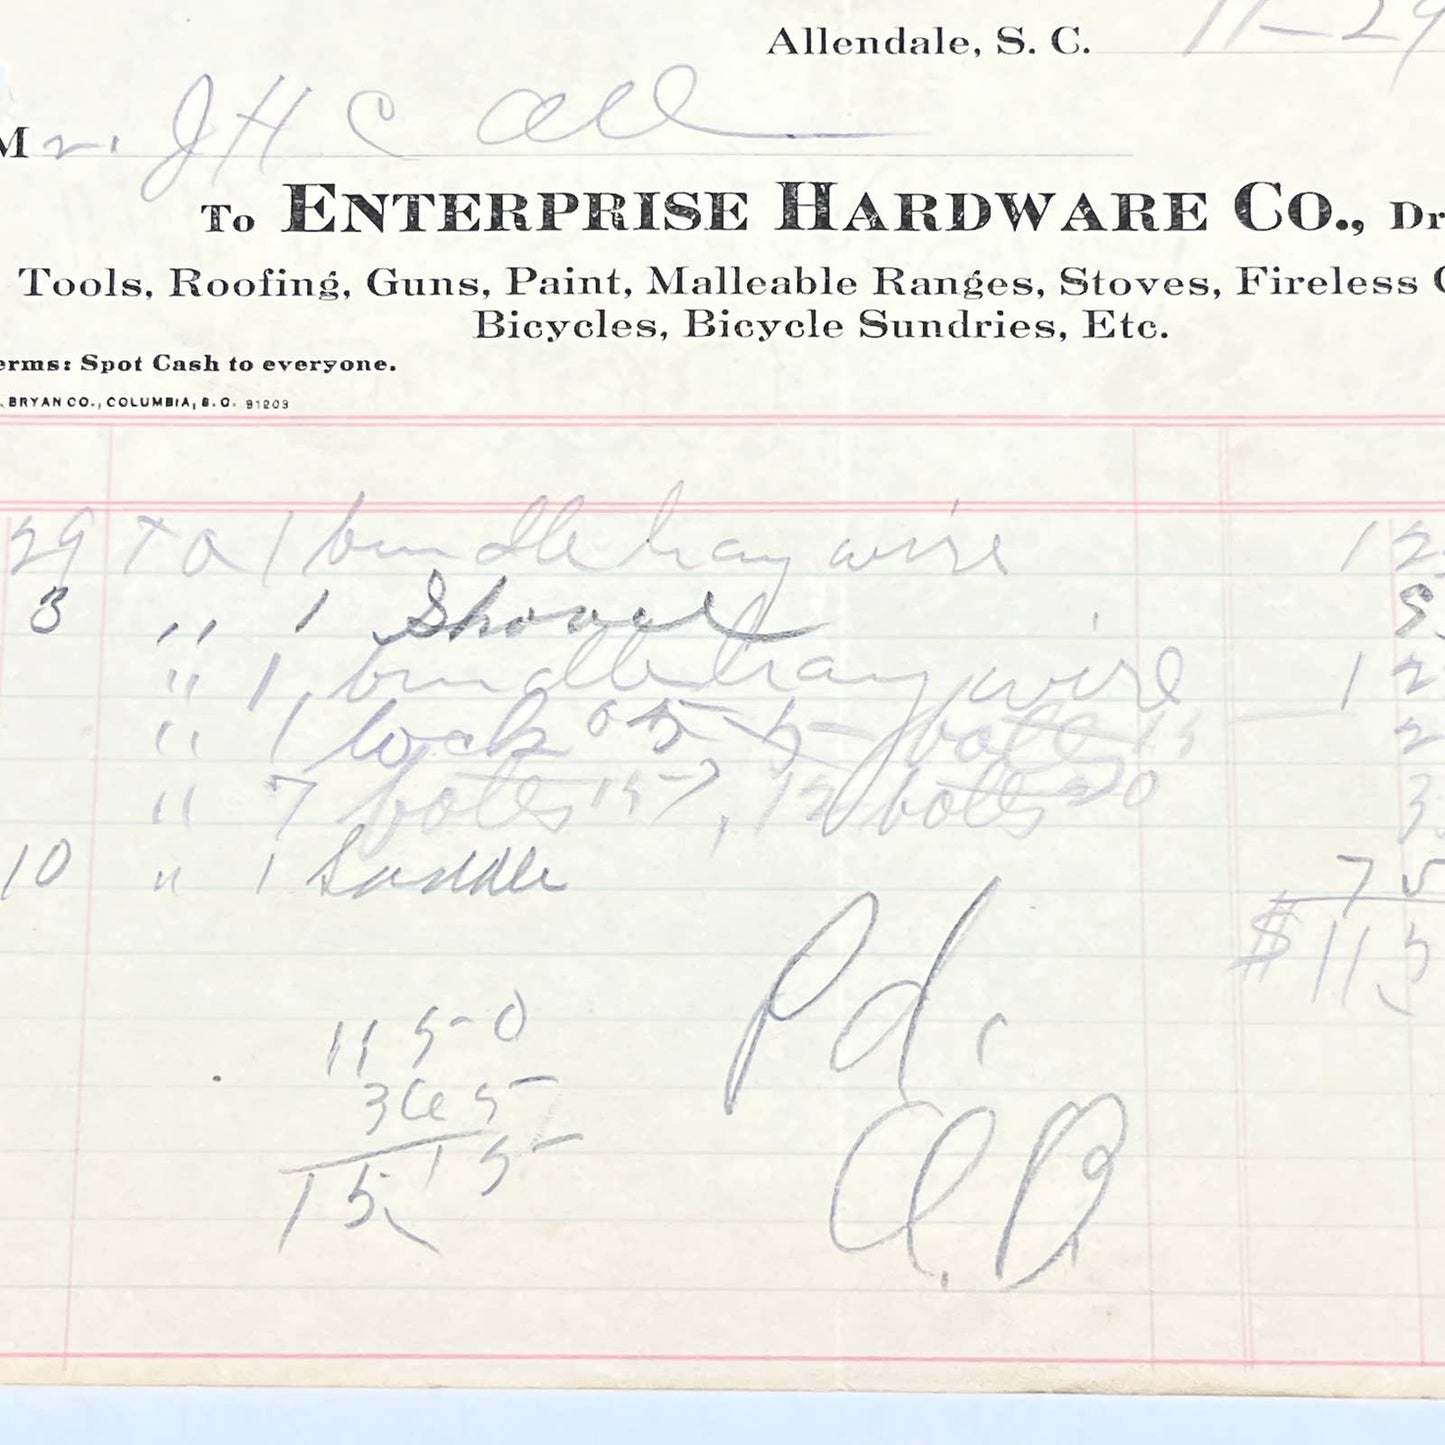 Allendale, S. C. 11-29
Mr. J H C All
To ENTERPRISE HARDWARE CO., Dr
Tools, Roofing, Guns, Paint, Malleable Ranges, Stoves, Fireless C
Bicycles, Bicycle Sundries, Etc.
erms: Spot Cash to everyone.
BRYAN CO., COLUMBIA, S. C. 91203
29 To 1 bundle hay wire 12
3 " 1 Shovel
" 1 bundle hay wire 12
" 1 lock 05 5 bolts 15 2
" 7 bolts 15, 12 bolts 20 3
10 " 1 Saddle 75
$115
Pd.
1150
365
1515